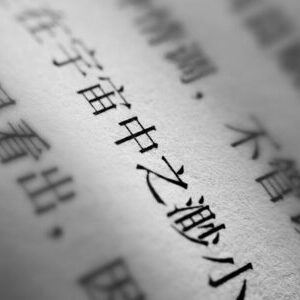 情调，不管
在宇宙中之渺小
看出，因